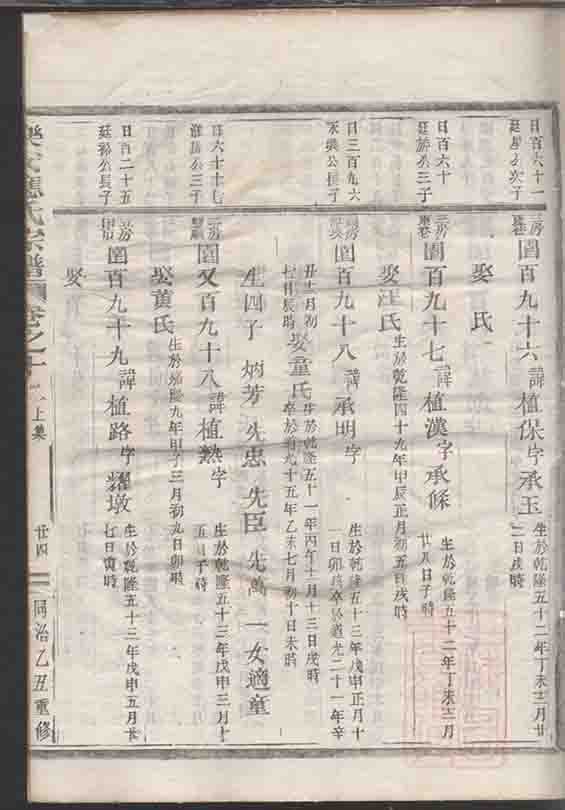 日百六十一
廷星公次子
圖百九十六諱植保字承玉
生於乾隆五十二年丁未十二月廿
二日戌時
娶 氏
日百六十
廷勝公三子
三房
圖百九十七諱植漢字承條
生於乾隆五十二年丁未十二月
廿八日子時
娶汪氏生於乾隆四十九年甲辰正月初五日戌時
日三百九六
永興公長子
圖百九十八諱承明字
生於乾隆五十三年戊申正月十
一日卯時卒於道光二十一年辛
丑十月初
七日辰時
娶童氏
生於乾隆五十一年丙午十二月十三日戌時
卒於道光十五年乙未七月初十日未時
生四子 炳芳 先忠 先臣 先萬 一女適童
日六十七
公三子
三房
圖又百九十八諱植熱字
生於乾隆五十三年戊申三月十
五日子時
娶黃氏生於嘉慶九年甲子三月初九日卯時
日百二十五
廷裕公長子
三房
圖百九十九諱植路字耀墩
生於乾隆五十三年戊申五月廿
七日寅時
娶
應氏宗譜
卷之十
上集
廿四
同治乙丑重修